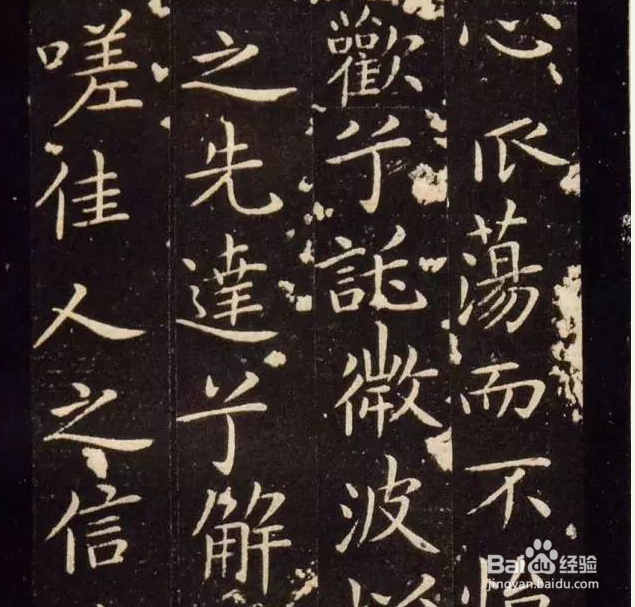 心蕩而不怡
歡兮託微波以
之先達兮解
嗟佳人之信
Bai 经验
jingyan.baidu.com